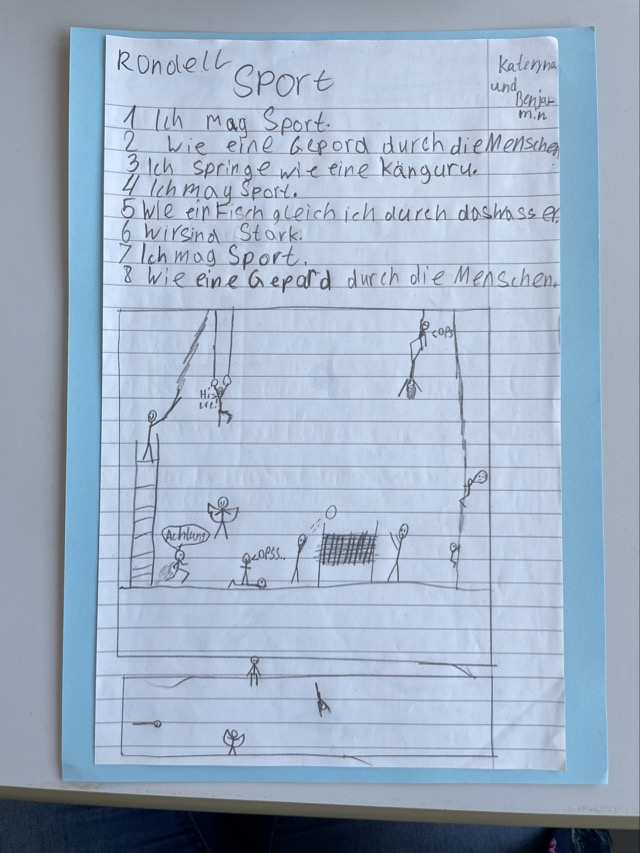 Rondell
Sport
Katerina
und
Benja-
min
1 Ich mag Sport.
2 Wie eine Gepord durch die Menschen
3 Ich springe wie eine Känguru.
4 Ich mag Sport.
5 Wie ein Fisch gleich ich durch das Wasser.
6 Wir sind Stark.
7 Ich mag Sport.
8 Wie eine Gepard durch die Menschen.
OPS
Achtung
OPSS..